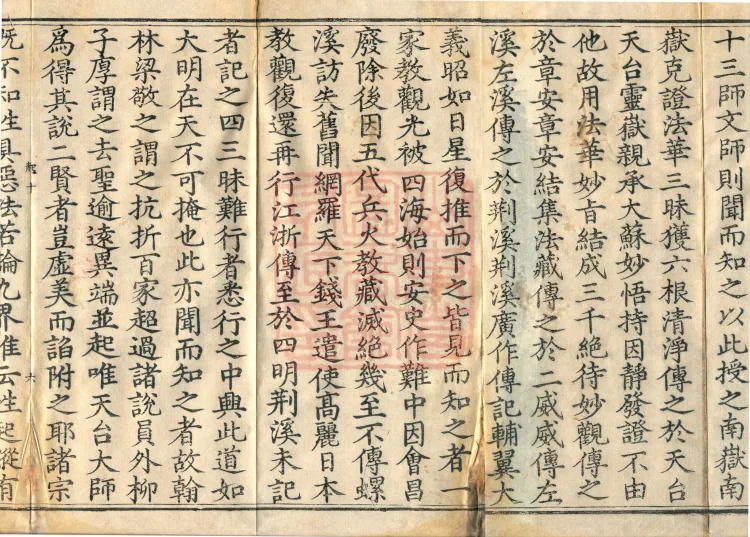 十三師文師則聞而知之以此授之南嶽南
嶽克證法華三昧獲六根清淨傳之於天台
天台靈嶽親承大蘇妙悟持因靜發證不由
他故用法華妙旨結成三千絕待妙觀傳之
於章安章安結集法藏傳之於二威威傳左
溪左溪傳之於荆溪荆溪廣作傳記輔翼大
義昭如日星復推而下之皆見而知之者一
家教觀光被四海始則安史作難中因會昌
廢除後因五代兵火教藏滅絕幾至不傳螺
溪訪失舊聞網羅天下錢王遣使髙麗日本
教觀復還再行江浙傳至於四明荆溪未記
者記之四三昧難行者悉行之中興此道如
大明在天不可掩也此亦聞而知之者故翰
林梁敬之謂之抗折百家超過諸說員外柳
子厚謂之去聖逾遠異端並起唯天台大師
爲得其說二賢者豈虛美而諂附之耶諸宗
六
既不知性具惡法若論九界唯云性起縱有